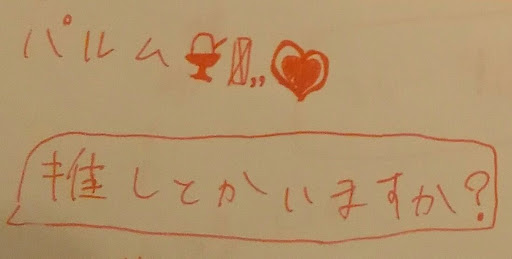 パルム
推しとかいますか?